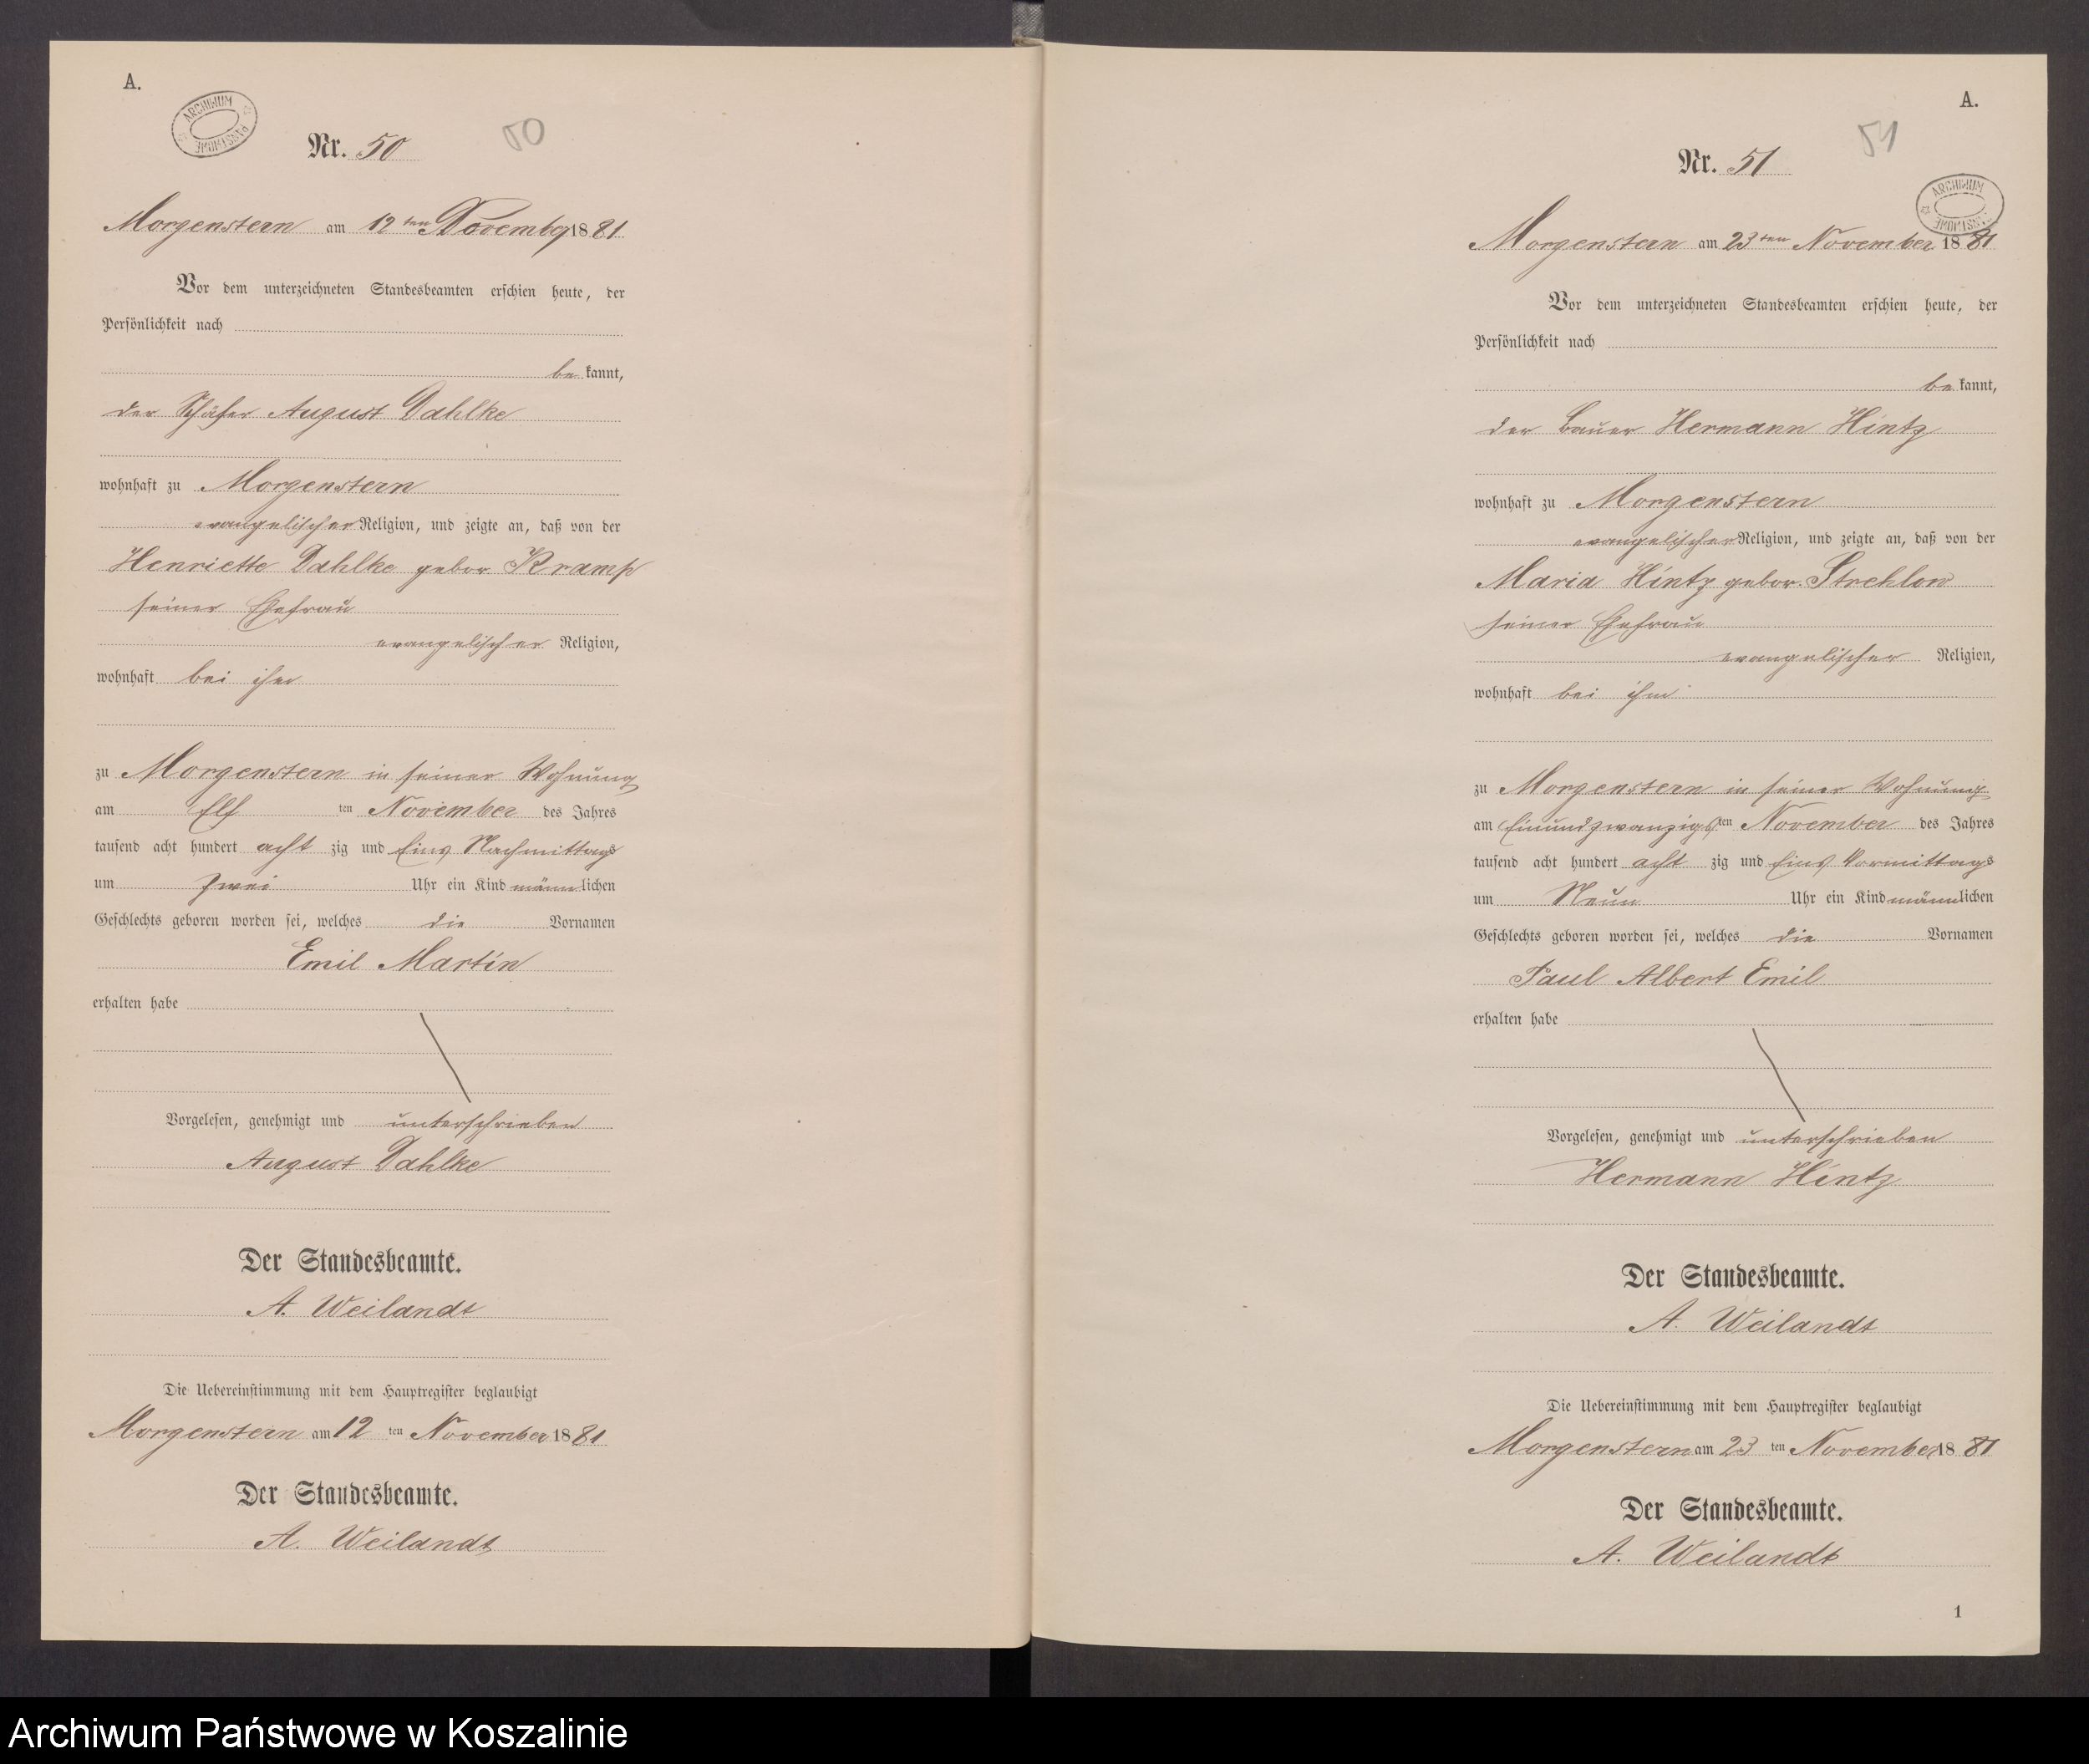 A.
ARCHIWUM PAŃSTWOWE
Nr. 50
50
Morgenstern am 12 ten November 1881
Vor dem unterzeichneten Standesbeamten erschien heute, der
Persönlichkeit nach
be kannt,
der Schäfer August Dahlke
wohnhaft zu Morgenstern
evangelischer Religion, und zeigte an, daß von der
Henriette Dahlke gebor. Kramp
seiner Ehefrau
evangelischer Religion,
wohnhaft bei ihm
zu Morgenstern in seiner Wohnung
am Elf ten November des Jahres
tausend acht hundert acht zig und Eins Nachmittags
um Zwei Uhr ein Kind männlichen
Geschlechts geboren worden sei, welches die Vornamen
Emil Martin
erhalten habe
Vorgelesen, genehmigt und unterschrieben
August Dahlke
Der Standesbeamte.
A. Weilandt
Die Uebereinstimmung mit dem Hauptregister beglaubigt
Morgenstern am 12 ten November 1881
Der Standesbeamte.
A. Weilandt
A.
51
Nr. 51
ARCHIWUM PAŃSTWOWE
Morgenstern am 23 ten November 1881
Vor dem unterzeichneten Standesbeamten erschien heute, der
Persönlichkeit nach
be kannt,
der Bauer Hermann Hintz
wohnhaft zu Morgenstern
evangelischer Religion, und zeigte an, daß von der
Maria Hintz gebor. Strehlow
seiner Ehefrau
evangelischer Religion,
wohnhaft bei ihm
zu Morgenstern in seiner Wohnung
am Einundzwanzigsten November des Jahres
tausend acht hundert acht zig und Eins Vormittags
um Neun Uhr ein Kind männlichen
Geschlechts geboren worden sei, welches die Vornamen
Paul Albert Emil
erhalten habe
Vorgelesen, genehmigt und unterschrieben
Hermann Hintz
Der Standesbeamte.
A. Weilandt
Die Uebereinstimmung mit dem Hauptregister beglaubigt
Morgenstern am 23 ten November 1881
Der Standesbeamte.
A. Weilandt
1
Archiwum Państwowe w Koszalinie